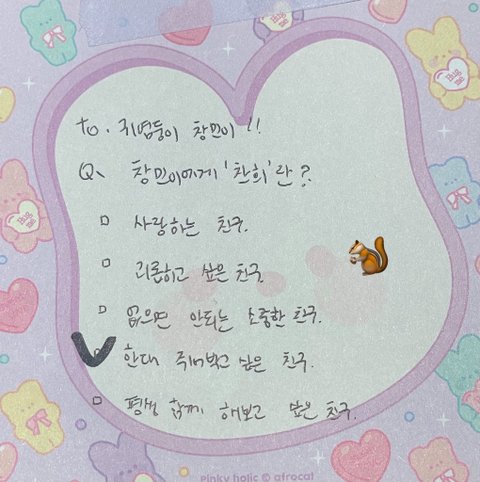 To. 귀염둥이 창민이!!
Q. 창민이에게 '찬희'란?
사랑하는 친구.
괴롭히고 싶은 친구
없으면 안되는 소중한 친구.
한대 쥐어박고 싶은 친구.
평생 함께 해보고 싶은 친구.
pinky holic © afrocat